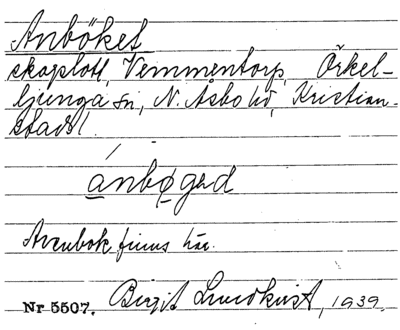 Anböket
skoplott, Vemmentorp, Örkel-
ljunga sn, N. Åsbo hd, Kristian-
stads l.
ánbøgəd
Avenbok finns här.
Nr 5507. Birgit Lundkvist, 1939.